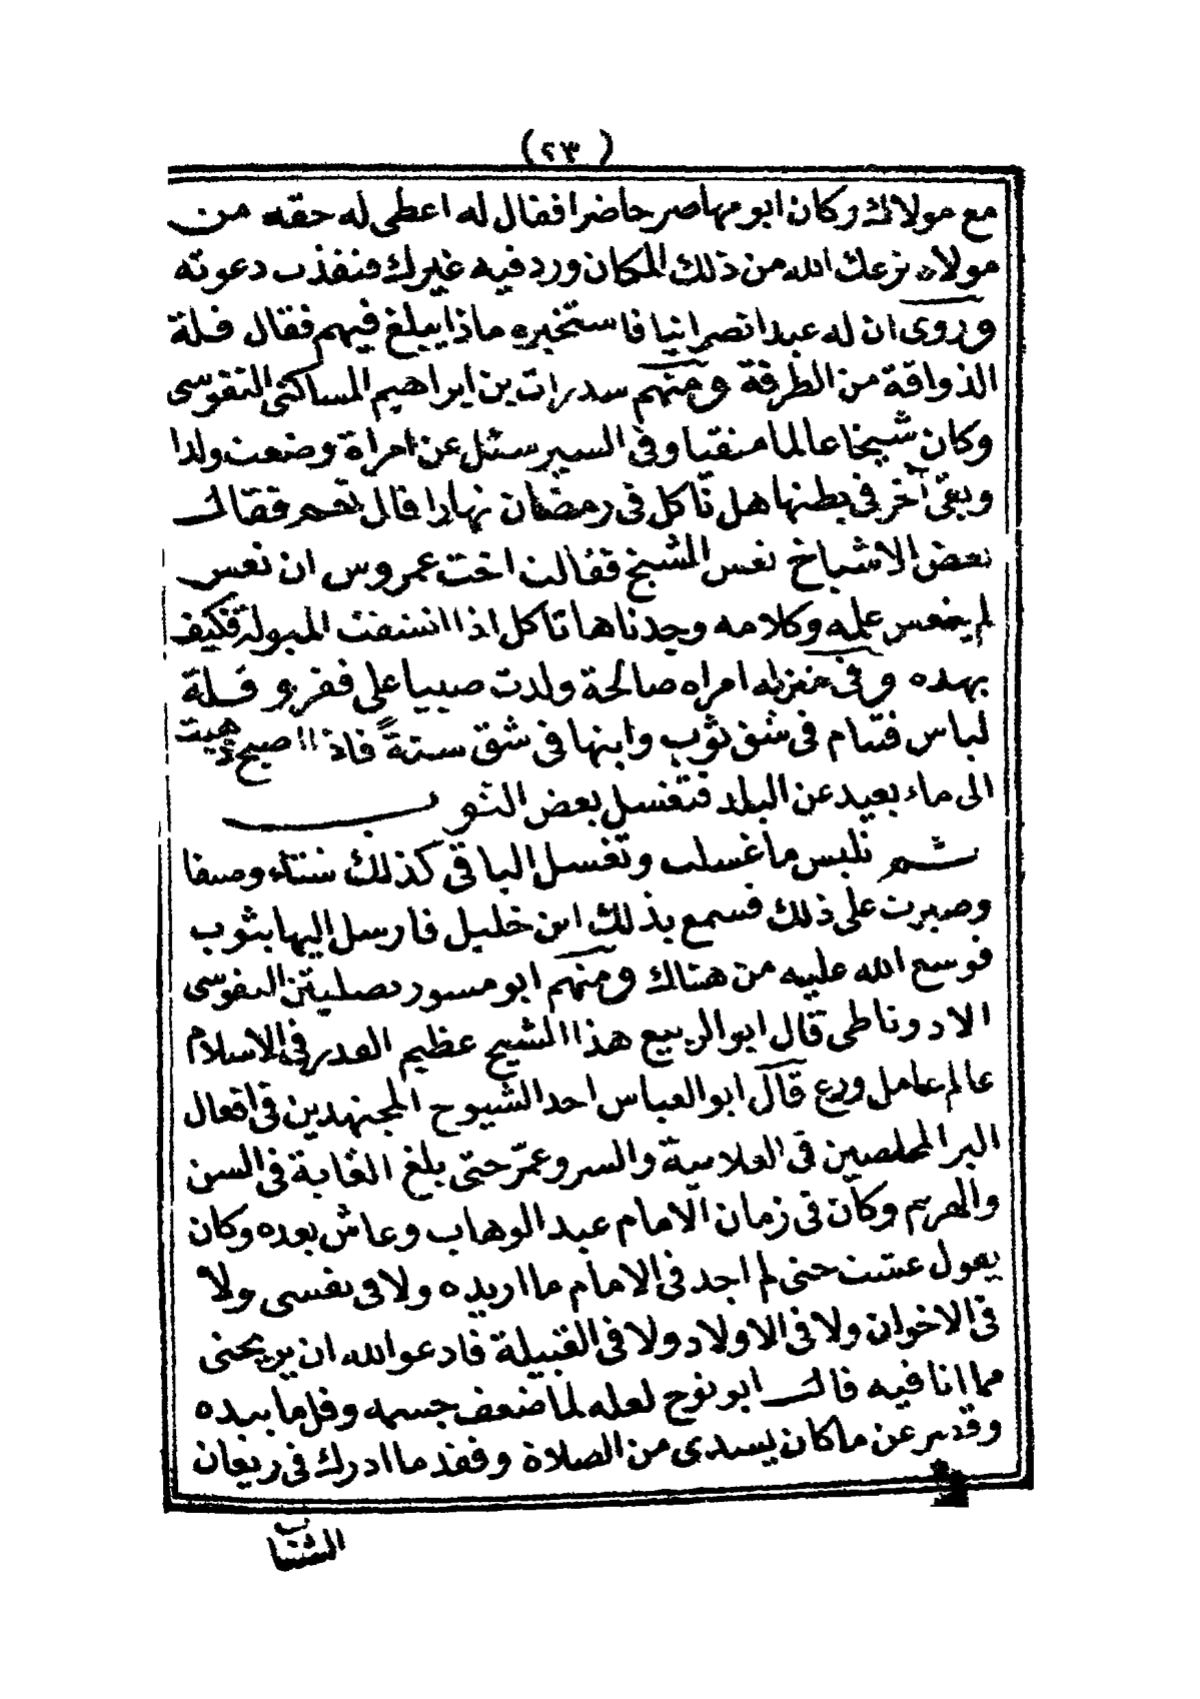 (٢٣)
مع مولاك وكان ابو مهاصر حاضرا فقال له اعطى له حقه من
مولاه نزعك الله من ذلك المكان ورد فيه غيرك فنفذت دعوته
وروى ان له عبدا نصرانيا فاستخبره ماذا يبلغ فيهم فقال قلة
الذواقة من الطرقة ومنهم سدرات بن ابراهيم المساكنى النفوسى
وكان شيخا عالما متقيا وفى السير سئل عن امراة وضعت ولدا
وبقى آخر فى بطنها هل تاكل فى رمضان نهارا قال نعم فقال
بعض الاشياخ نعس الشيخ فقالت اخت عمروس ان نعس
لم ينعس علمه وكلامه وجدناها تاكل اذا انشفت المبولة فكيف
بهده وفى منزله امراه صالحة ولدت صبيا على فقر و قلة
لباس فتنام فى شق ثوب وابنها فى شق سنة فاذا اصبح ذهبت
الى ماء بعيد عن البلد فتغسل بعض الثوب
ثم تلبس ما غسلت وتغسل الباقى كذلك شتاء وصيفا
وصبرت على ذلك فسمع بذلك ابن خليل فارسل اليها بثوب
فوسع الله عليه من هناك ومنهم ابو مسور يصليتن النفوسى
الادوناطى قال ابو الربيع هذا الشيخ عظيم القدر فى الاسلام
عالم عامل ورع قال ابو العباس احد الشيوخ المجتهدين فى افعال
البر المخلصين فى العلانية والسر وعمّر حتى بلغ الغاية فى السن
والهرم وكان فى زمان الامام عبد الوهاب وعاش بعده وكان
يقول عشت حتى لم اجد فى الامام ما اريده ولا فى نفسى ولا
فى الاخوان ولا فى الاولاد ولا فى القبيلة فادعوا الله ان يريحنى
مما انا فيه قال ابو نوح لعله لما ضعف جسمه وقل ما بيده
وقصر عن ما كان يسدى من الصلاة وفقد ما ادرك فى ريعان
الشباب